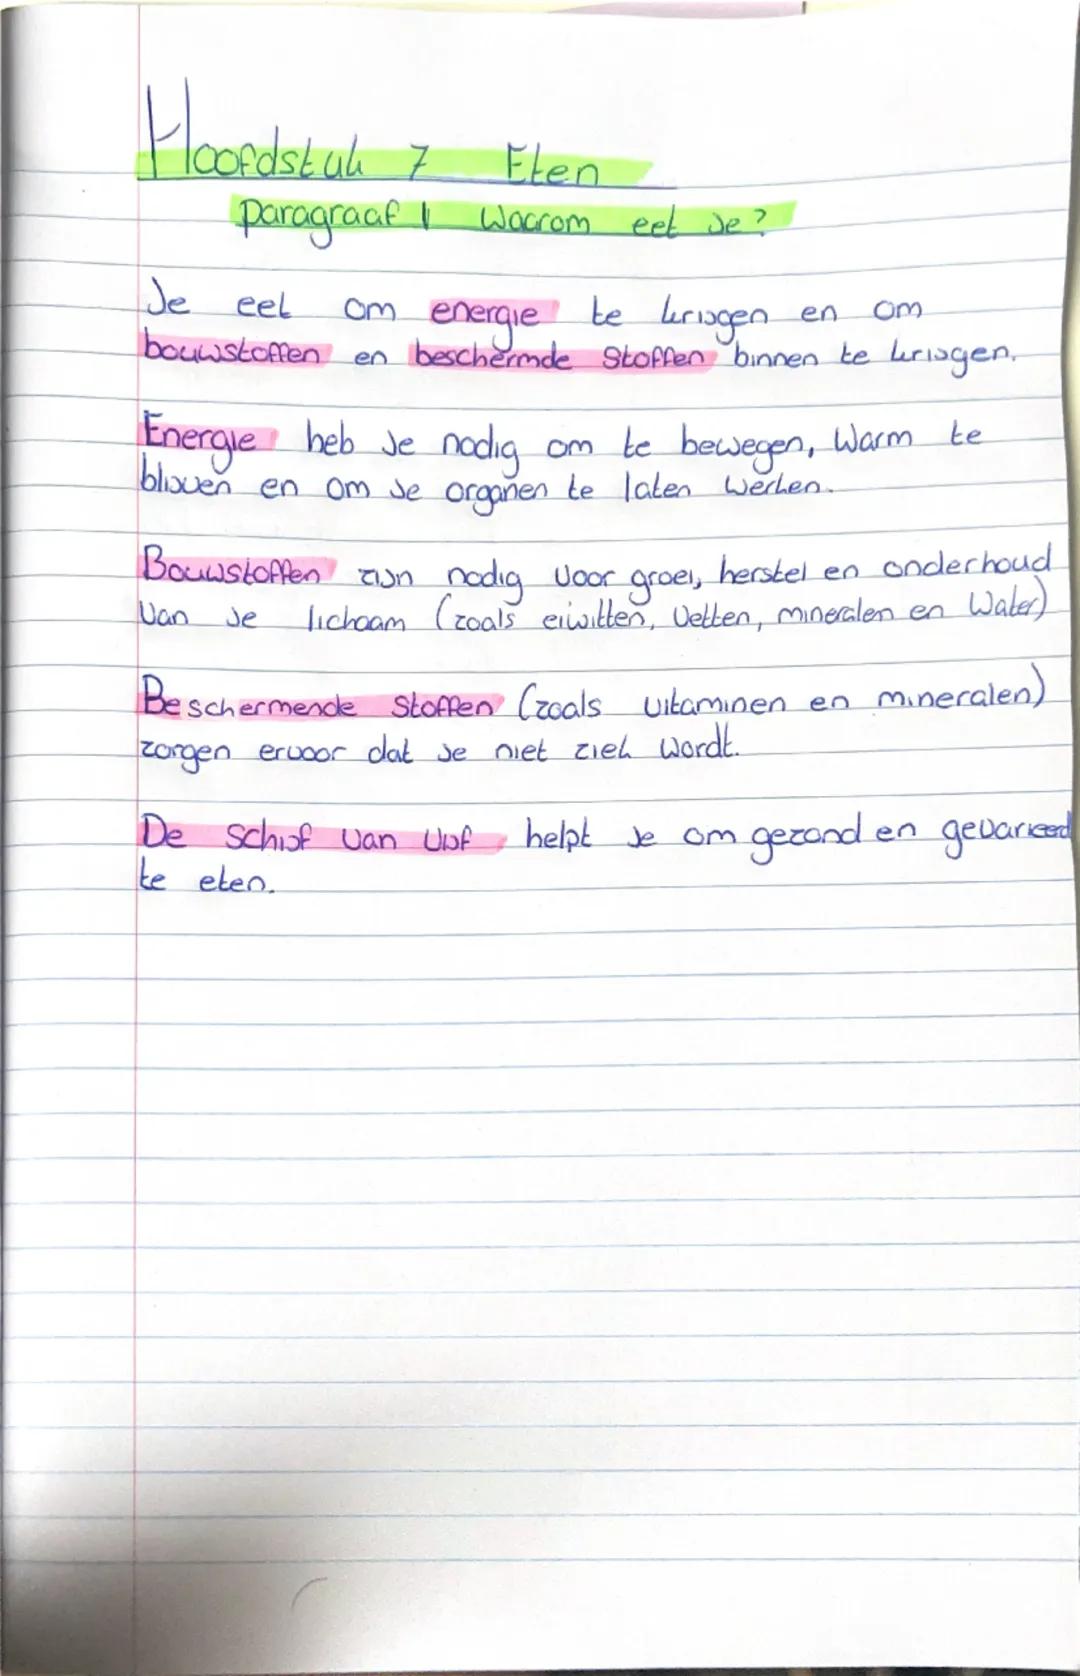 Hoofdstuk 7 Eten
paragraaf 1 Waarom eet je?
Je eet om energie te krijgen en om
bouwstoffen en beschermde stoffen binnen te krijgen.
Energie heb je nodig om te bewegen, warm te
blijven en om je organen te laten werken.
Bouwstoffen zijn nodig voor groei, herstel en onderhoud
van je lichaam (zoals eiwitten, vetten, mineralen en water)
Beschermende stoffen (zoals vitaminen en mineralen)
zorgen ervoor dat je niet ziek wordt.
De schijf van vijf helpt je om gezond en gevarieerd
te eten.